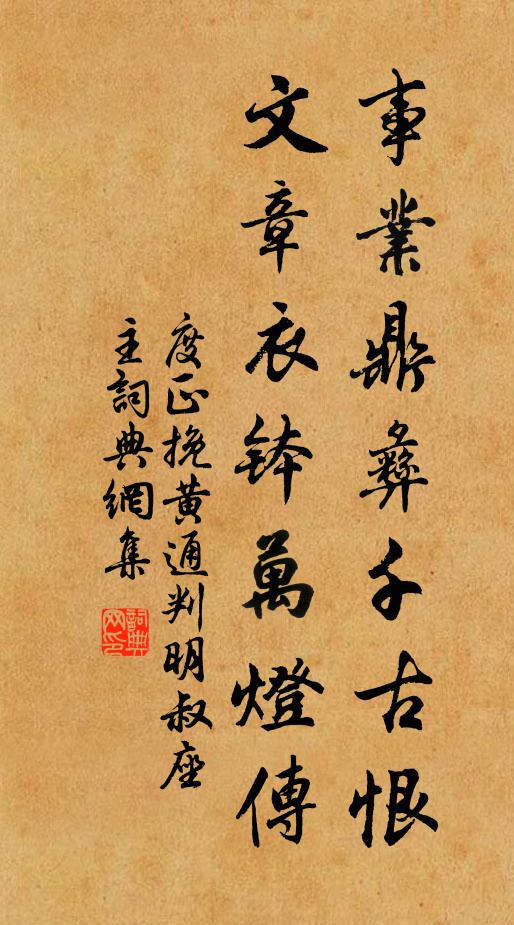 事業鼎彝千古恨
文章衣鉢萬燈傳
度正挽黃通判明叔座
主詞典網集
詞典网印